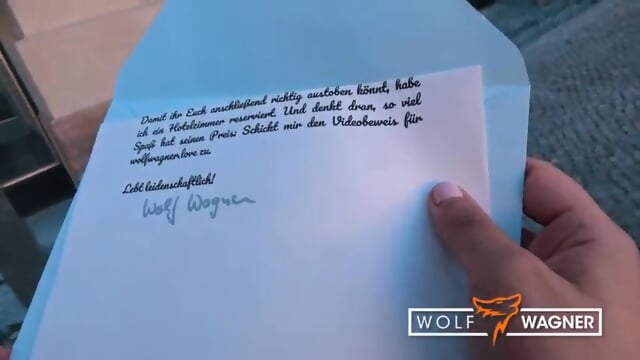 Damit ihr Euch anschließend richtig austoben könnt, habe
ich ein Hotelzimmer reserviert. Und denkt dran, so viel
Spaß hat seinen Preis: Schickt mir den Videobeweis für
wolfwagner.love zu.
Lebt leidenschaftlich!
Wolf Wagner
WOLF WAGNER